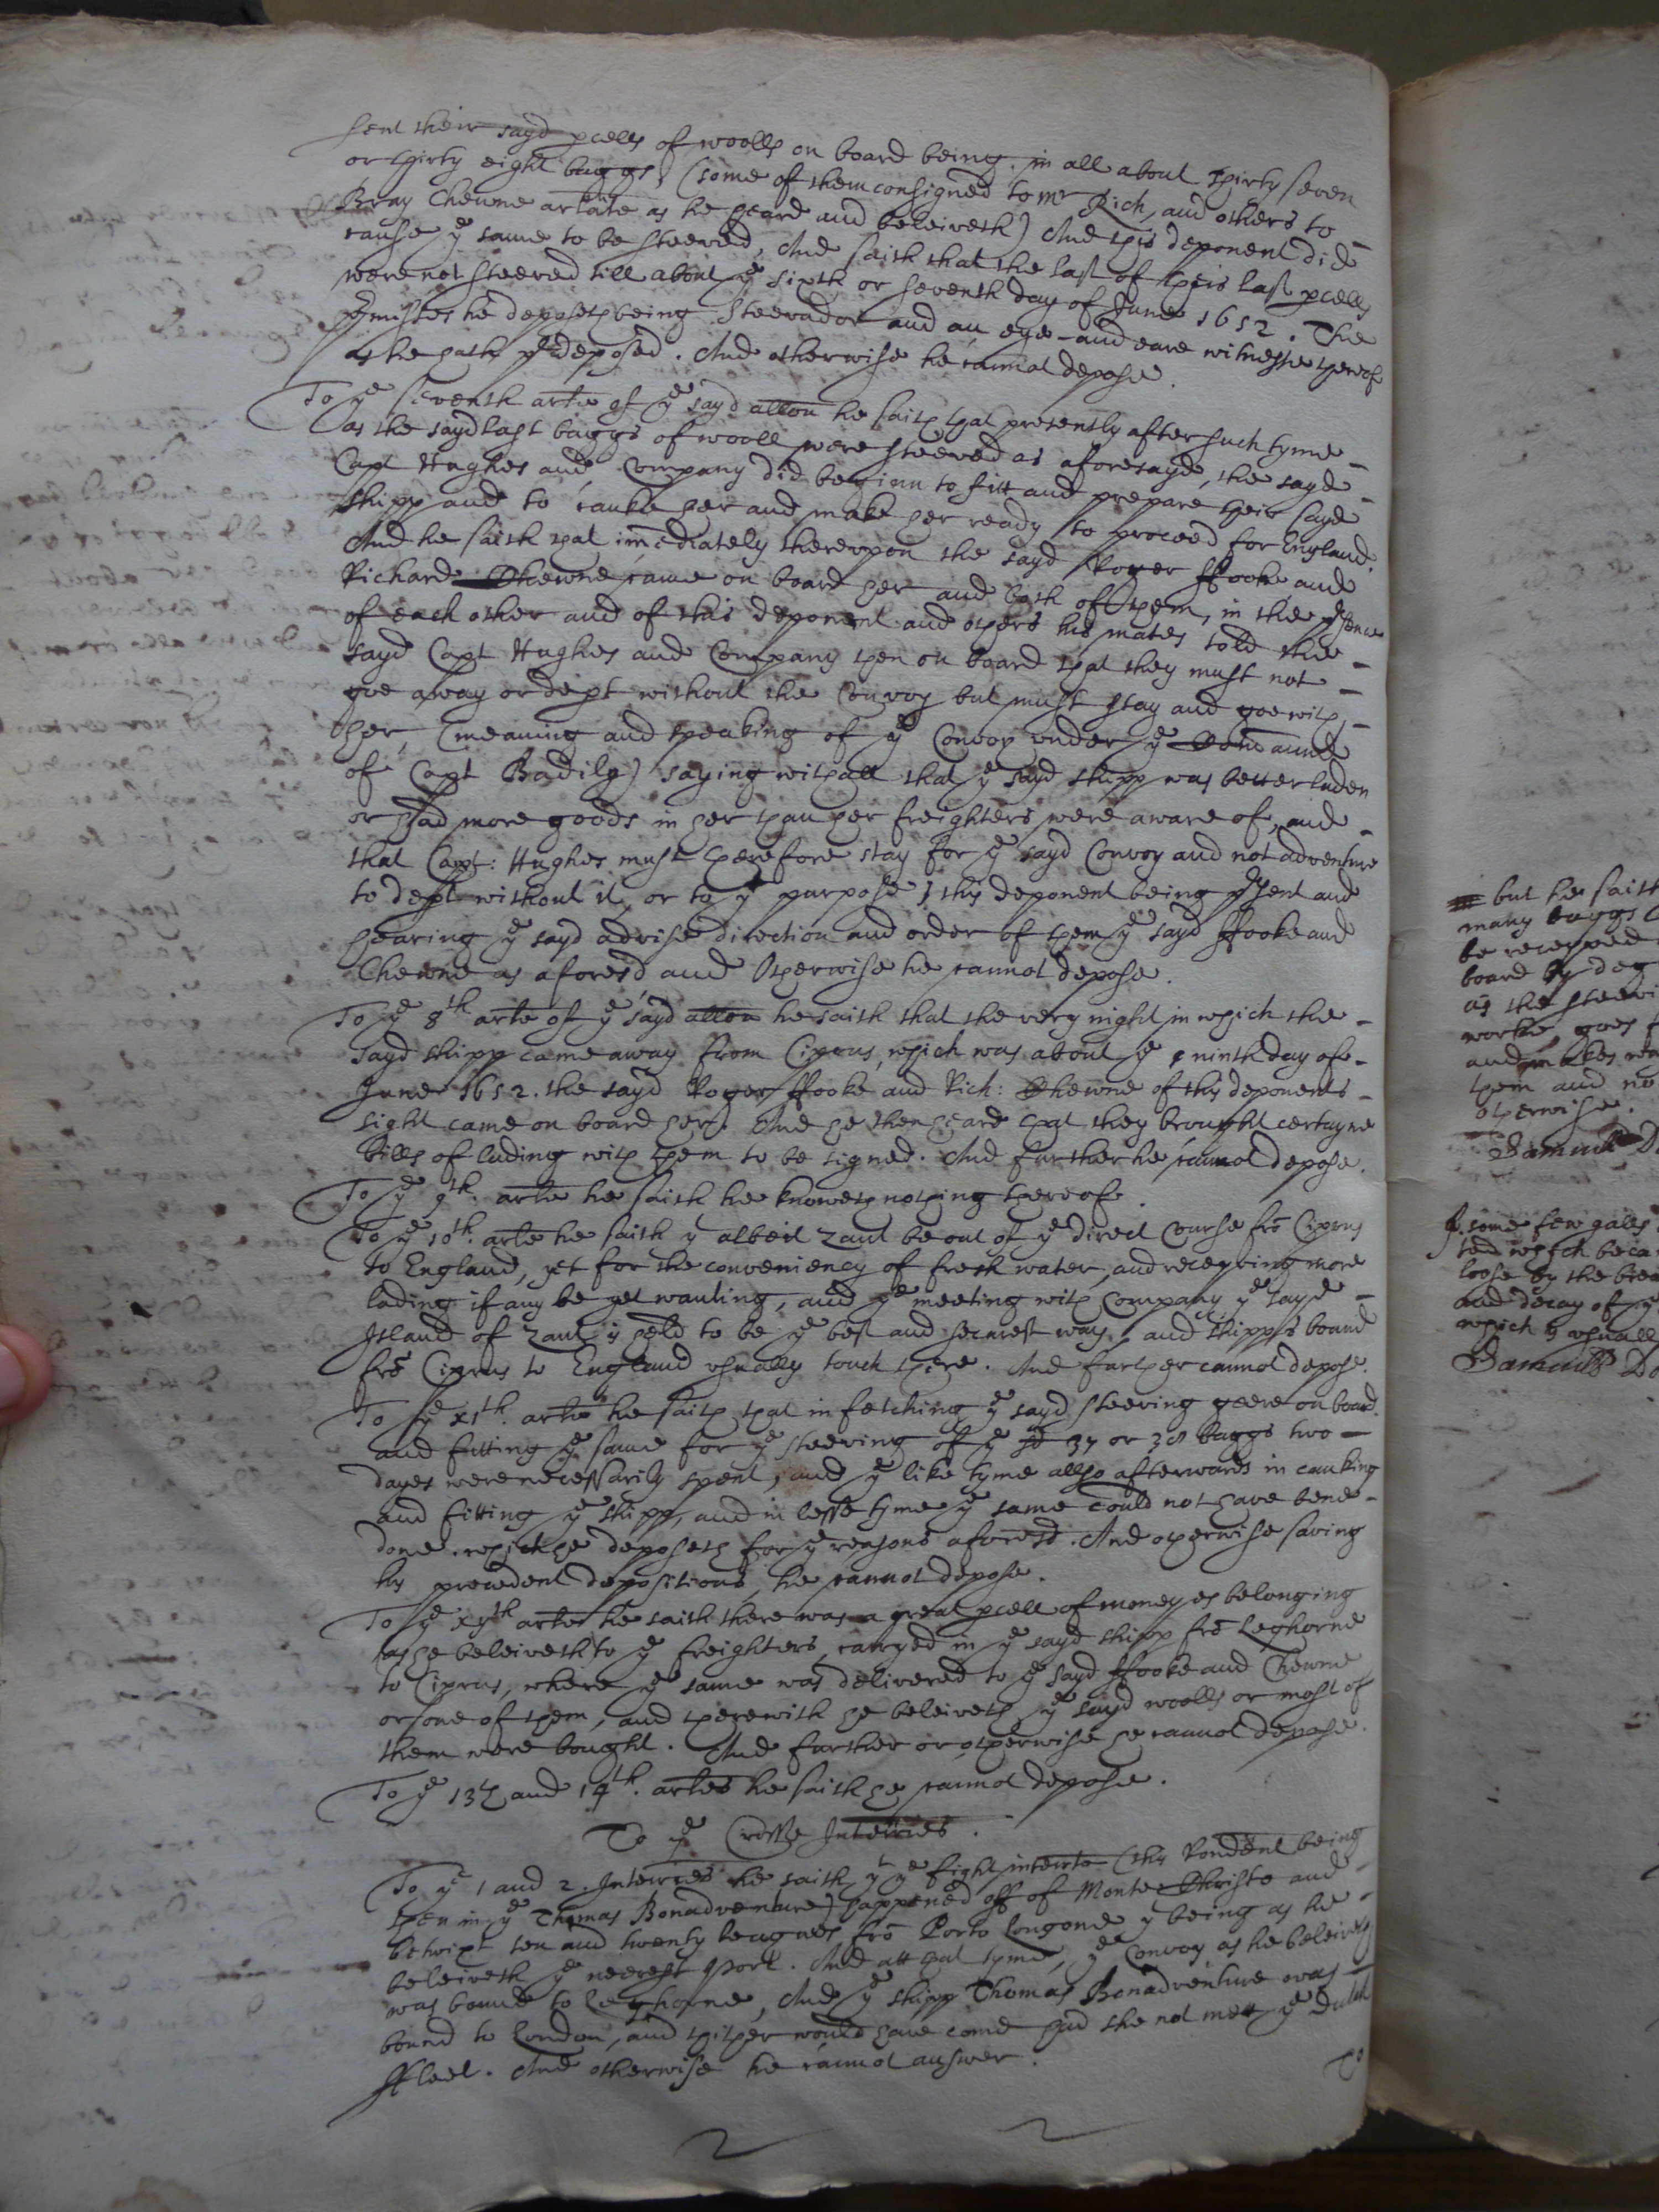 sent their sayd pcells of woolls on board being in all about thirty seven
or thirty eight baggs, (some of them consigned to Mr Rich, and others to
Bray Chewne arlate as he heard and beleiveth) And this deponent did
cause ye same to be steeved, And saith that the last of theis last pcells
were not steeved till about ye sixth or seventh day of June 1652. The
pmisses he deposeth being Steevador and an eye and eare witnesse thereof
as he hath pdeposed. And otherwise he cannot depose.
To ye seventh arle of ye sayd allon he saith that presently after such tyme
as the sayd last baggs of wooll were steeved as aforesayd, the sayd
Capt Hughes and Company did beginn to fitt and prepare theis sayd
shipp and to cauke her and make her ready to proceed for England.
And he saith that imediately thereupon the sayd Roger ffooke and
Richard Chewne came on board her and both of them, in the psence
of each other and of this deponent and others his mates told the
sayd Capt Hughes and Company then on board that they must not
goe away or dept without the Convoy but must stay and goe with
her (meaning and speaking of ye Convoy under ye Comaund
of Capt Badily) saying withall that ye sayd shipp was better laden
or had more goods in her than her freighters were aware of, and
that Capt: Hughes must therefore stay for ye sayd Convoy and not adventure
to dept without it, or to yt purpose, this deponent being psent and
hearing ye sayd advise direction and order of them ye sayd ffooke and
Chewne as aforesd and Otherwise he cannot depose.
To ye 8th arle of ye sayd allon he saith that the very night in which the
sayd shipp came away from Ciprus, which was about ye ninth day of
June 1652. the sayd Roger ffooke and Rich: Chewne of this deponents
sight came on board her. And he then heard that they brought certayne
bills of lading with them to be signed. And further he cannot depose.
To ye 9th. arle he saith he knoweth nothing thereof.
To ye 10th. arle he saith yt albeit Zant be out of ye direct Course fro Ciprus
to England, yet for the conveniency of fresh water, and receyving more
lading if any be yet wanting, and ye meeting with Company ye sayd
Island of Zant is held to be ye best and securest way, and shipps bound
fro Ciprus to England usually touch there. And further cannot depose.
To ye xith. arle he saith that in fetching ye sayd steeving geere on board.
and fitting ye same for ye steeving of ye sd 37 or 38 baggs two
dayes were necessarily spent, and ye like tyme allso afterwards in cauking
and fitting ye shipp, and in lesse tyme ye same could not have bene
done. which he deposeth for ye reasons aforesd. And otherwise saving
his precedent depositions, he cannot depose.
To ye xijth arle he saith there was a great pcell of moneyes belonging
as he beleiveth to ye freighters, carryed in ye sayd shipp fro Leghorne
to Ciprus, where ye same was delivered to ye sayd ffooke and Chewne
or one of them, and therewith he beleiveth ye sayd woolls or most of
them were bought. And further or otherwise he cannot depose.
To ye 13th and 14th. arles he saith he cannot depose.
To ye Crosse Interries.
To ye 1 and 2. Interries he saith yt ye fight interrte (this Rondent being
then in ye Thomas Bonadventure) happened off of Monte Christo and
betwixt ten and twenty leagues fro Porto Longone yt being as he
beleiveth ye neerest Port. And att that tyme, ye Convoy as he beleiveth
was bound to Leghorne, And ye shipp Thomas Bonadventure was
bound to London, and thither would have come had she not mett ye Dutch
ffleet. And otherwise he cannot answer.
To
but he saith
many baggs
be receyved
board by deg
as the steevi
worke goes f
and makes
them and no
otherwise.
Samuell
some few galls
loose by the brea
and decay of ye
which is usuall
Samuell